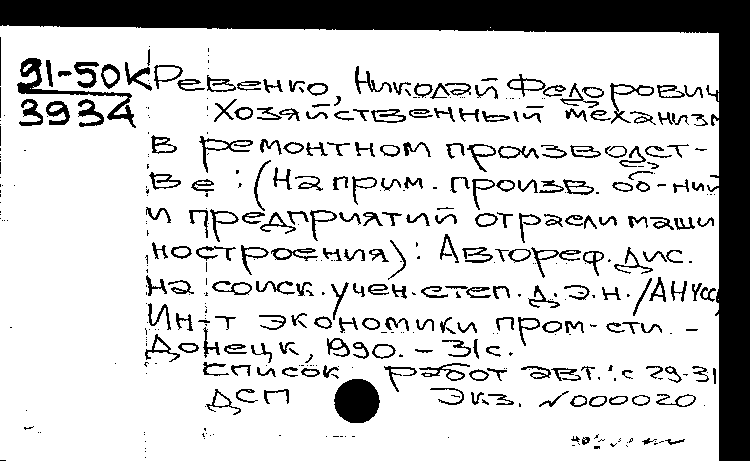 91-50К Ревенко, Николай Федорович
3934 Хозяйственный механизм
в ремонтном производст-
ве : (На прим. произв. об-ний
и предприятий отрасли маши
ностроения) : Автореф. дис.
на соиск. учен. степ. д.э.н. / АН УССР,
Ин-т экономики пром-сти. -
Донецк, 1990. - 31 с.
Список работ авт.: с 29-31
ДСП Экз. №000020